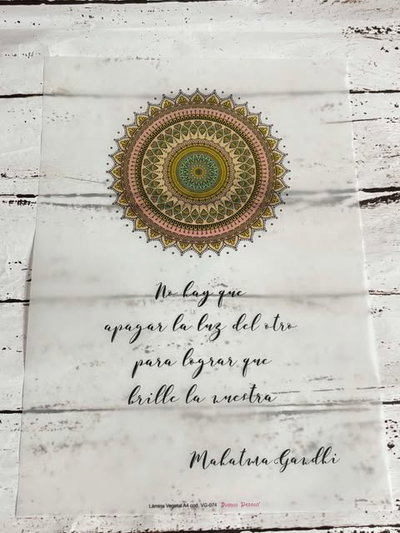 No hay que
apagar la luz del otro
para lograr que
brille la nuestra
Mahatma Gandhi
Lámina Vegetal A4 cod. VG-074